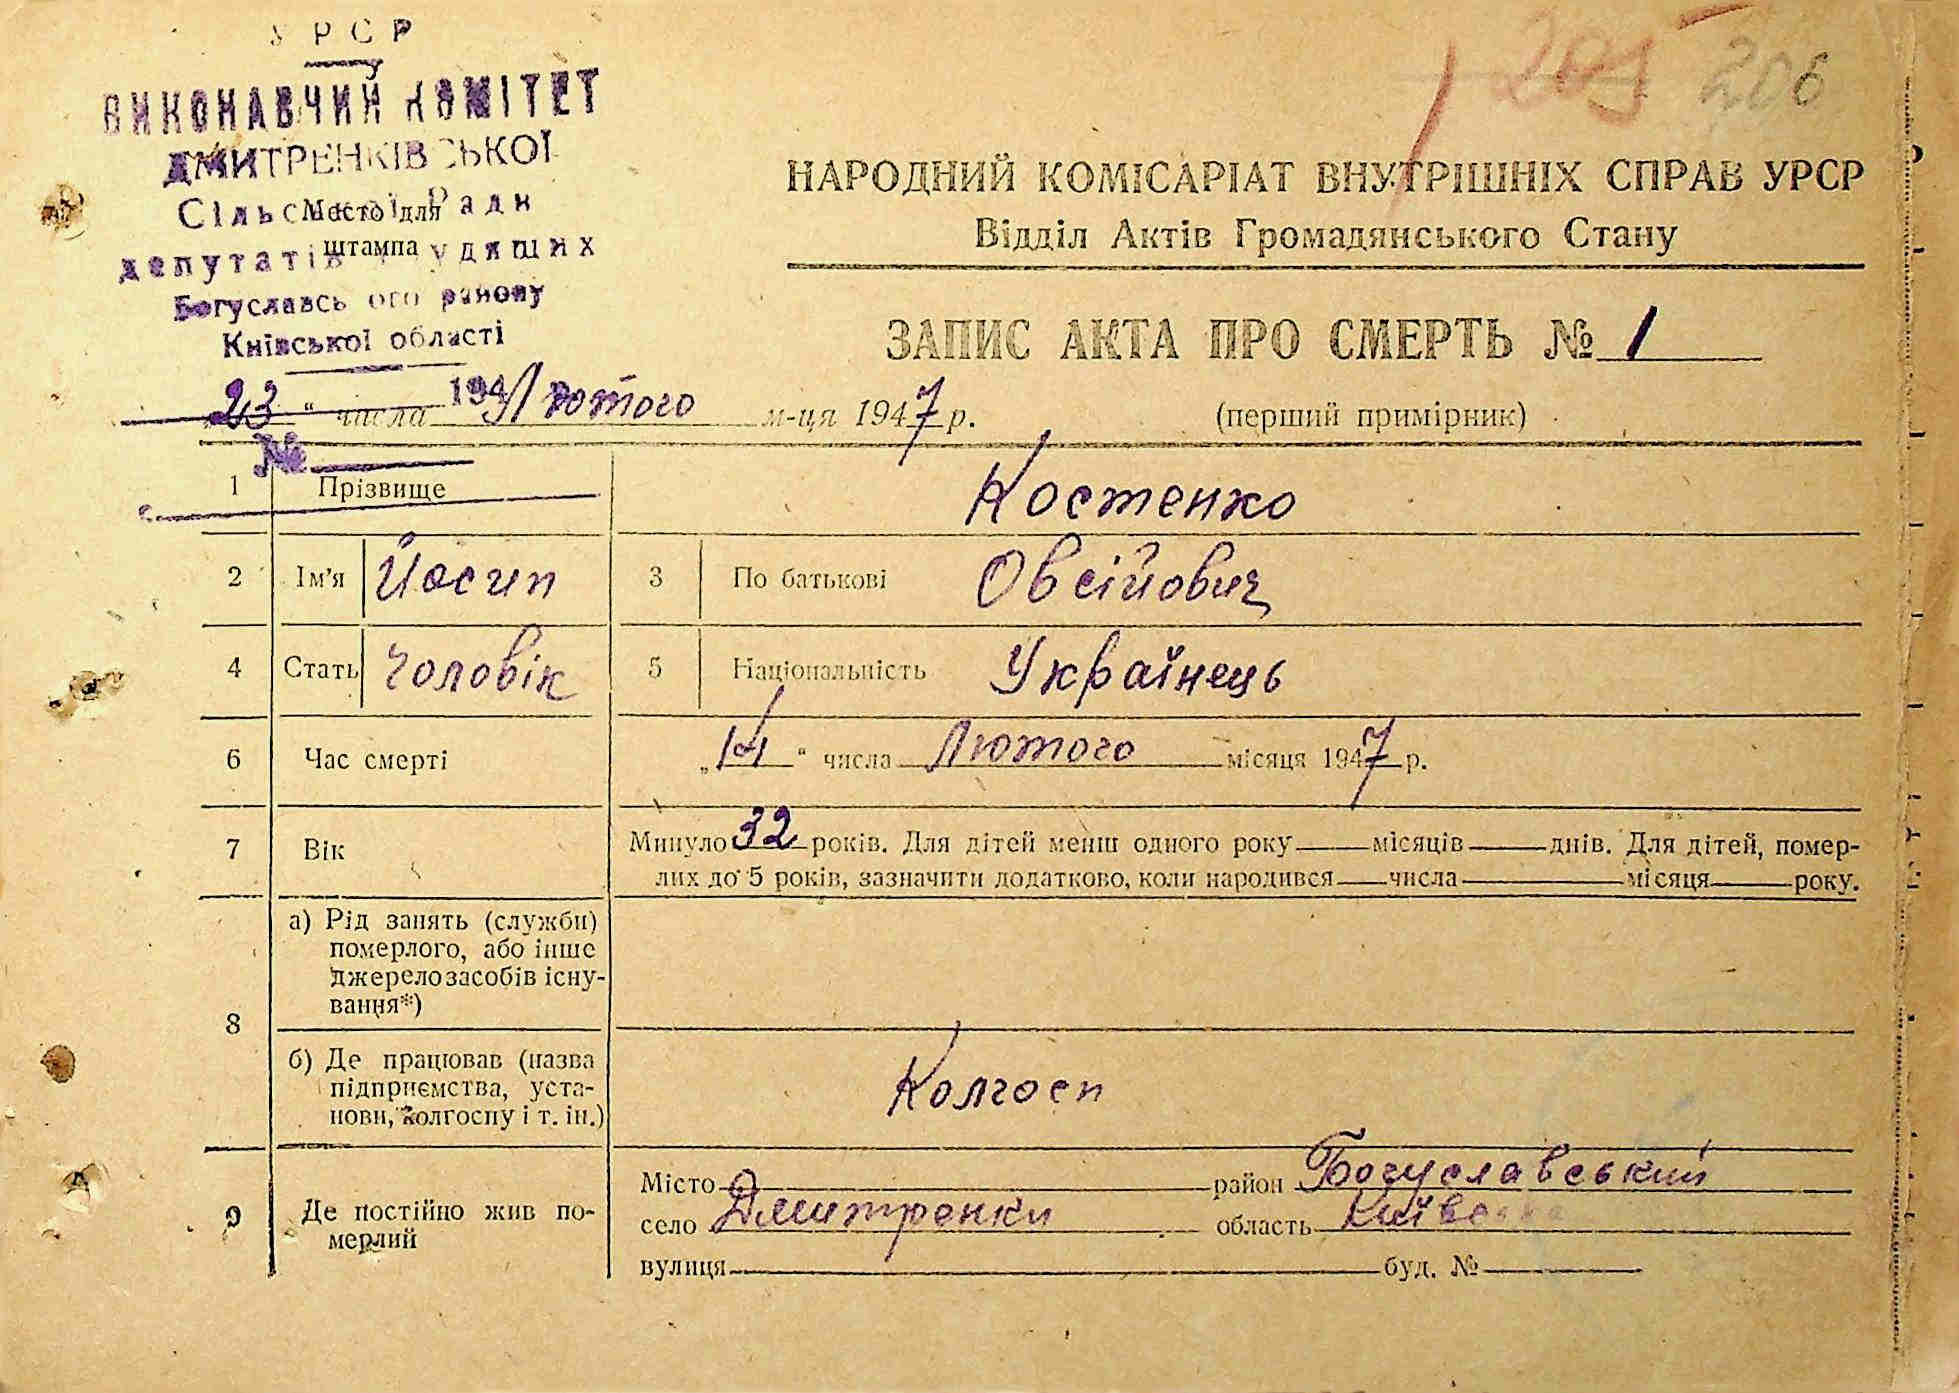 УРСР
ВИКОНАВЧИЙ КОМІТЕТ
ДМИТРЕНКІВСЬКОЇ
Сільської Ради
Место для
штампа
депутатів трудящих
Богуславського району
Київської області
205 206
НАРОДНИЙ КОМІСАРІАТ ВНУТРІШНІХ СПРАВ УРСР
Відділ Актів Громадянського Стану
ЗАПИС АКТА ПРО СМЕРТЬ № 1
194
23 " числа Лютого м-ця 1947 р. (перший примірник)
№
1 Прізвище Костенко
2 Ім'я Йосип 3 По батькові Овсійович
4 Стать Чоловік 5 Національність Українець
6 Час смерті „14" числа Лютого місяця 1947 р.
7 Вік Минуло 32 років. Для дітей менш одного року місяців днів. Для дітей, помер-
лих до 5 років, зазначити додатково, коли народився числа місяця року.
8 а) Рід занять (служби)
померлого, або інше
джерело засобів існу-
вання*)
б) Де працював (назва
підприємства, уста-
нови, колгоспу і т. ін.) Колгосп
9 Де постійно жив по-
мерлий
Місто район Богуславський
село Дмитренки область Київська
вулиця буд. №